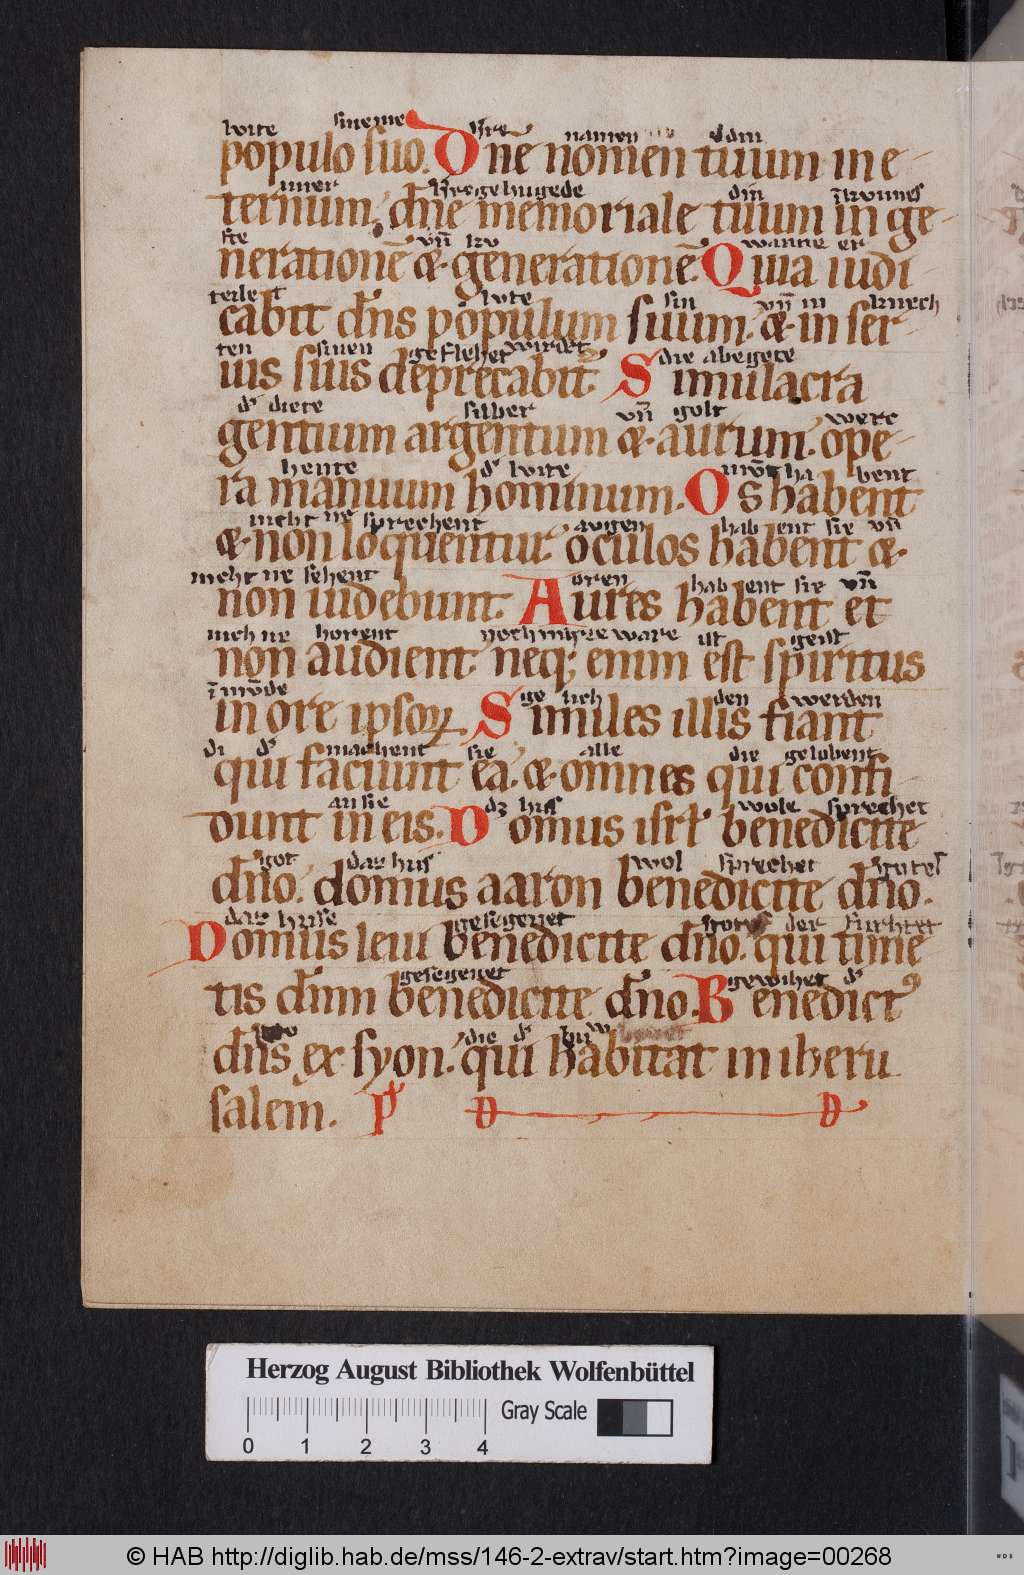 lvite sineme h're namen dim
populo suo. Dne nomen tuum in e-
imer h're gehugede din
ternum. dne memoriale tuum in ge-
vn̄ kv
nerationē & generationē. Quia iudi
wanne er
teilet lvte sin vn̄ in knech
cabit dn̄s populum suum. & in ser-
ten sinen geflehet wirdet die abegote
uis suis deprecabit. Simulacra
d' diete silber vn̄ golt werc
gentium argentum & aurum. ope-
hente d' lvite mvnt habent
ra manuum hominum. Os habent
nicht ne sprechent augen habent sie vn̄
& non loquentur. oculos habent &
nicht ne sehent oren habent sie vn̄
non uidebunt. Aures habent et
nich ne horent noch ware ist geist
non audient. neq; enim est spiritus
in mvnde gelich den werden
in ore ipsoꝝ. Similes illis fiant
di d' machent sie alle die gelobent
qui faciunt ea. & omnes qui confi
an sie dz hus wole sprechet
dunt in eis. Domus isrl' benedicite
got daz hus wol sprechet gote
dn̄o. domus aaron benedicite dn̄o.
daz huse gesegenet gotes der furhtet
Domus leui benedicite dn̄o. qui time
gesegenet gewihet d'
tis dn̄m benedicite dn̄o. Benedictꝰ
die d'
dn̄s ex syon. qui habitat in iheru
salem. P D D
Herzog August Bibliothek Wolfenbüttel
Gray Scale
0 1 2 3 4
© HAB http://diglib.hab.de/mss/146-2-extrav/start.htm?image=00268